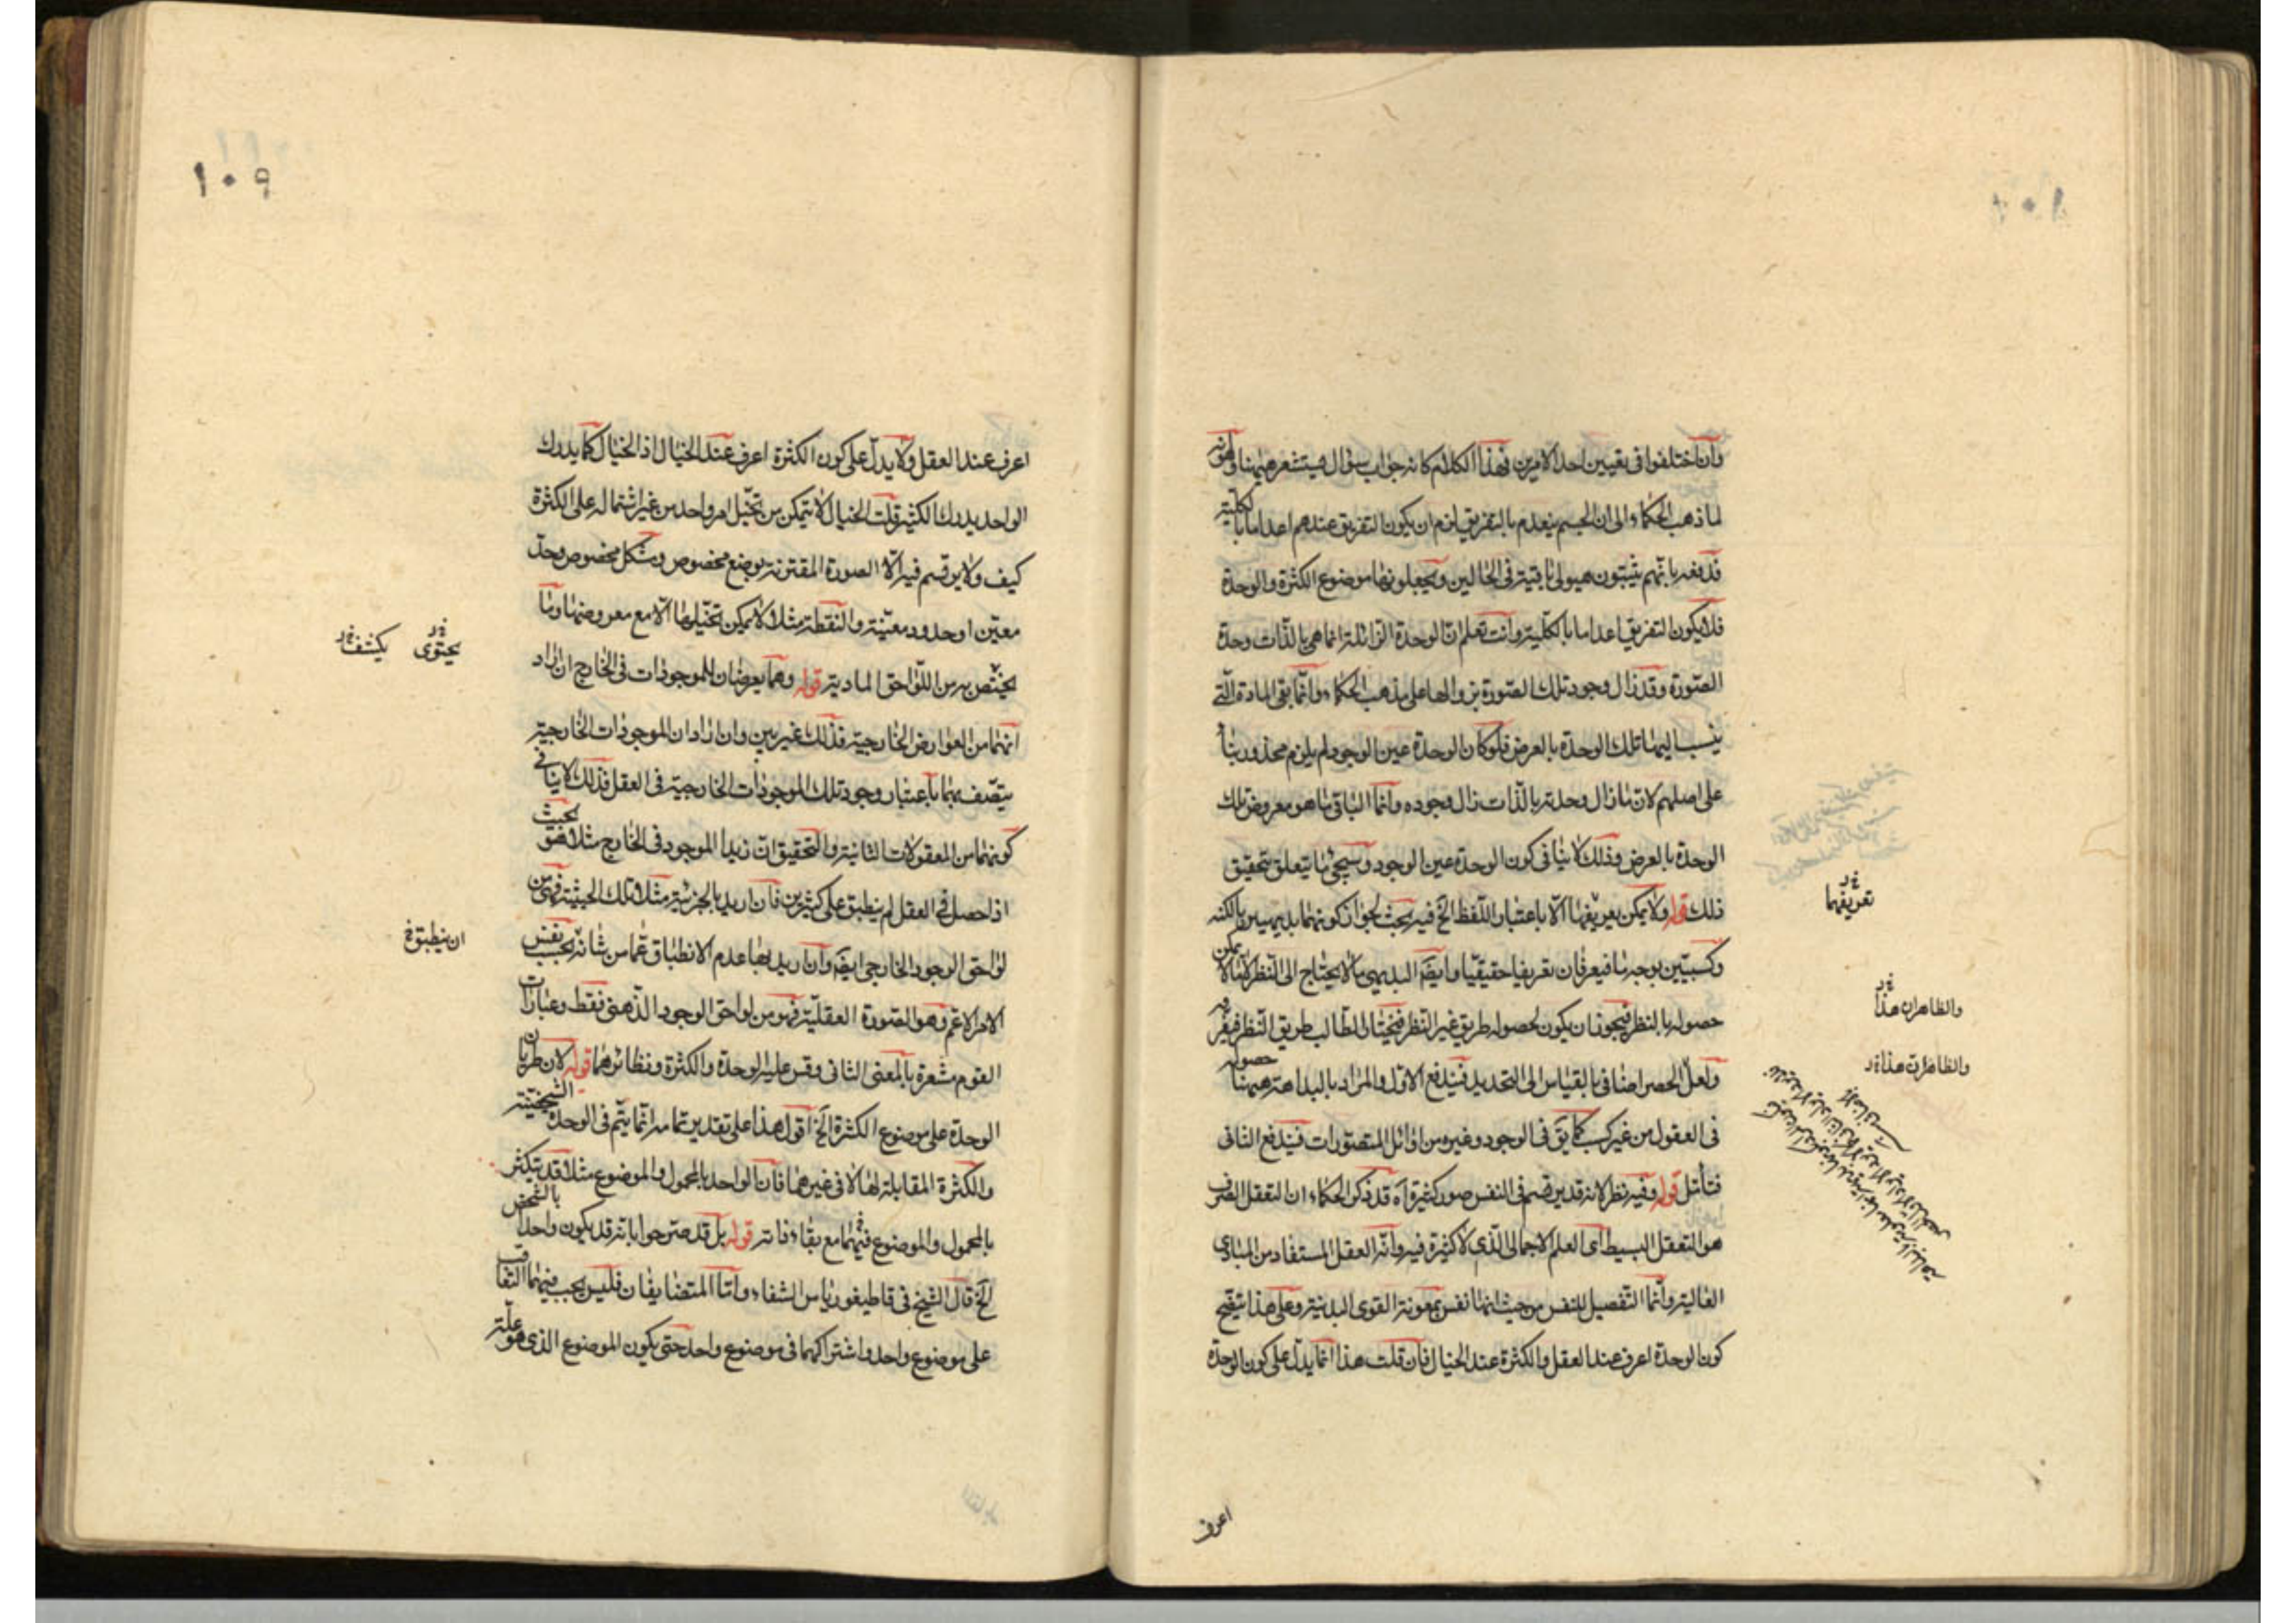 وان اختلفوا فى تعيين احد الامرين فهذا الكلام كانه جواب سؤال يستشعر ههنا وهو انه
لما ذهب الحكماء الى ان الجسم ينعدم بالتفريق لزم ان يكون التفريق عندهم اعداما بالكلية
فدفعه بانهم يثبتون هيولى باقية فى الحالين ويجعلونها موضوع الكثرة والوحدة
فلا يكون التفريق اعداما بالكلية وانت تعلم ان الوحدة الزائلة انما هى بالذات وحدة
الصورة وقد زال وجود تلك الصورة بزوالها على مذهب الحكماء وانما بقى المادة التى
ينسب اليها تلك الوحدة بالعرض فلو كان الوحدة عين الوجود لم يلزم محذور بناء
على اصلهم لان ما زال وحدته بالذات زال وجوده وانما الباقى ما هو معروض تلك
الوحدة بالعرض وذلك لا ينافى كون الوحدة عين الوجود وسيجئ ما يتعلق بتحقيق
ذلك قوله ولا يمكن تعريفها الا باعتبار اللفظ الخ فيه بحث لجواز كونهما بديهيين بالكنه
وكسبيين بوجه ما فيعرفان تعريفا حقيقيا وايضا البديهى ما لا يحتاج الى النظر لا ما لا يمكن
حصوله بالنظر فيجوز ان يكون لحصوله طريق غير النظر فيختار الطالب طريق النظر فيعرّفه
ولعل الحصر اضافى بالقياس الى التحديد فيندفع الاول والمراد بالبداهة ههنا حصوله
فى العقول من غير كسب كما يق فى الوجود وغيره من اوائل المتصورات فيندفع الثانى
فتأمل قوله وفيه نظر لانه قد يرتسم فى النفس صور كثيرة اه قد ذكر الحكماء ان التعقل الصرف
هو التعقل البسيط اى العلم الاجمالى الذى لا كثرة فيه وانه العقل المستفاد من المبادى
العالية وانما التفصيل للنفس من حيث انها نفس بمعونة القوى البدنية وعلى هذا يتضح
كون الوحدة اعرف عند العقل والكثرة عند الخيال فان قلت هذا انما يدل على كون الوحدة
تعريفهما
والظاهر ان هذا
والظاهر ان هذا
اعرف
١٠٩
اعرف عند العقل ولا يدل على كون الكثرة اعرف عند الخيال اذ الخيال كما يدرك
الواحد يدرك الكثير قلت الخيال لا يتمكن من تخيل امر واحد من غير اشتماله على الكثرة
كيف ولا يرتسم فيه الا الصورة المقترنة بوضع مخصوص وشكل مخصوص وحد
معين او حدود معينة والنقطة مثلا لا يمكن تخيلها الا مع معروضها وما
يختص به من اللواحق المادية قوله وهما يعرضان للموجودات فى الخارج ان اراد
انهما من العوارض الخارجية فذلك غير بين وان اراد ان الموجودات الخارجية
يتصف بهما باعتبار وجود تلك الموجودات الخارجية فى العقل فذلك لا ينافى
كونهما من المعقولات الثانية والتحقيق ان زيدا الموجود فى الخارج مثلا هو بحيث
اذا حصل فى العقل لم ينطبق على كثيرين فان اريد بالجزئية مثلا تلك الحيثية فهى من
لواحق الوجود الخارجى ايضا وان اريد بها عدم الانطباق عما من شانه بحسب نفس
الامر الاعم وهو الصورة العقلية فهو من لواحق الوجود الذهنى فقط وعبارات
القوم مشعرة بالمعنى الثانى وقس عليه الوحدة والكثرة ونظائرهما قوله لان طريان
الوحدة على موضوع الكثرة الخ اقول هذا على تقدير تمامه انما يتم فى الوحدة الشخصية
والكثرة المقابلة لها لا فى غيرهما فان الواحد بالمحمول والموضوع مثلا قد يتكثر
بالمحمول والموضوع فيهما مع بقاء ذاته قوله بل قد صرحوا بانه قد يكون واحدا بالشخص
الخ قال الشيخ فى قاطيغورياس الشفاء واما المتضايفان فليس يجب فيهما التعاقب
على موضوع واحد واشتراكهما فى موضوع واحد حتى يكون الموضوع الذى هو علة
يحتوى
يكشف
ان ينطبق